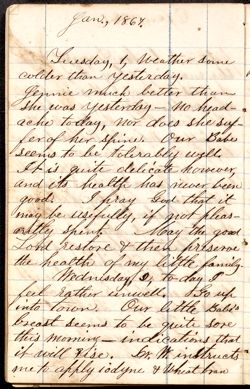 Jan, 1867.
Tuesday, 1, Weather some
colder than yesterday.
Jennie much better than
she was yesterday — No head-
ache today, nor does she suf-
fer of her spine. Our Babe
seems to be tolerably well.
It is quite delicate however,
and its health has never been
good. I pray God that it
may be usefully, if not pleas-
antly spent. May the good
Lord restore & then preserve
the health of my little family.
Wednesday, 2, to-day I
feel rather unwell. Go up
into town. Our little Babe's
breast seems to be quite sore
this morning — indications that
it will rise. Dr. W. instructs
me to apply iodyne & wheat bran